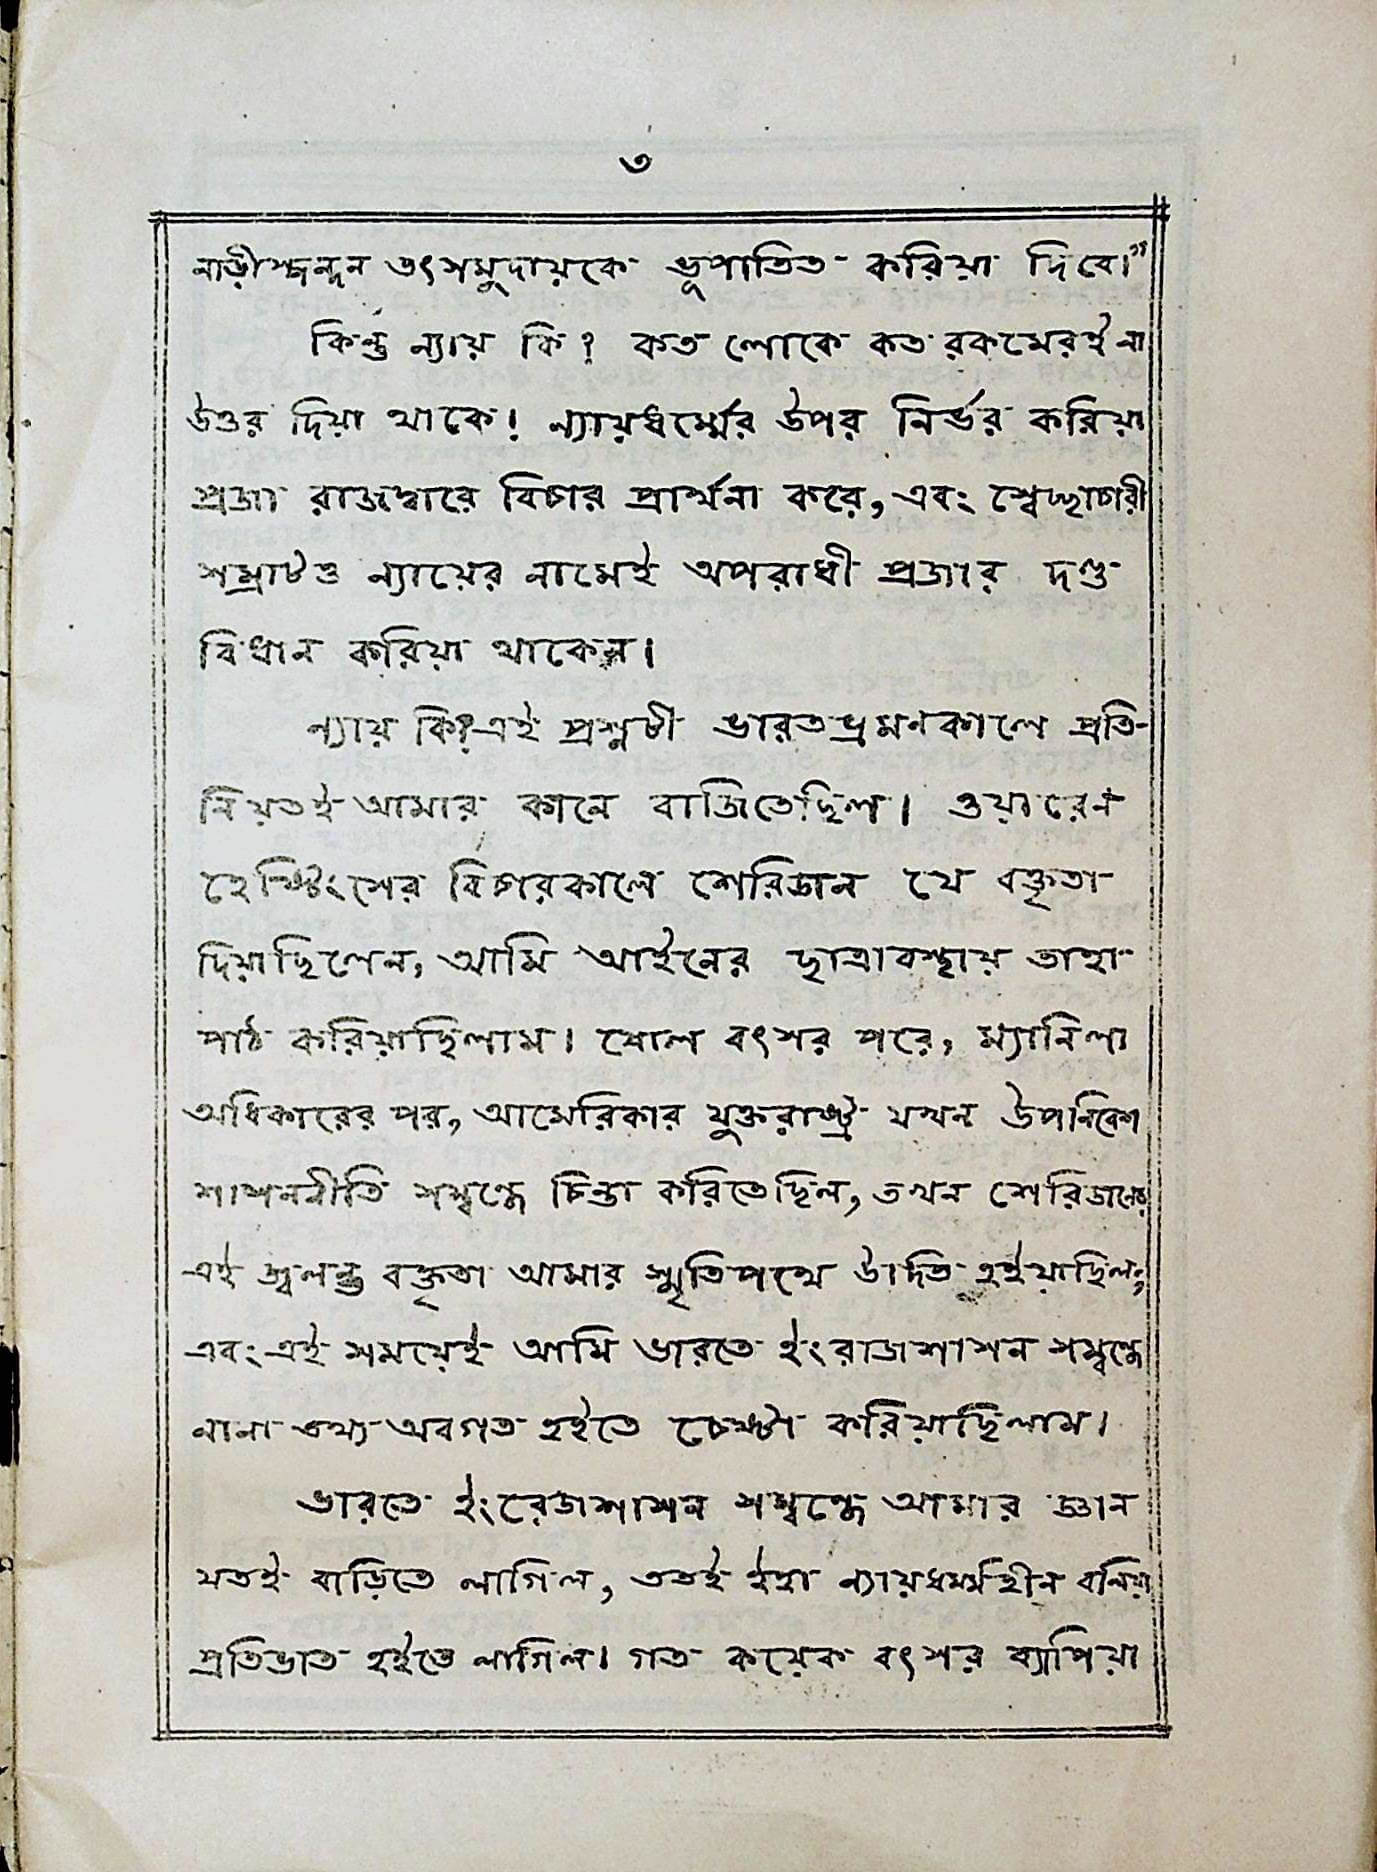 ৩
নাড়ীস্পন্দন তৎসমুদায়কে ভূপাতিত করিয়া দিবে।"
কিন্তু ন্যায় কি? কত লোকে কত রকমেরই না
উত্তর দিয়া থাকে! ন্যায়ধর্ম্মের উপর নির্ভর করিয়া
প্রজা রাজদ্বারে বিচার প্রার্থনা করে, এবং স্বেচ্ছাচারী
সম্রাটও ন্যায়ের নামেই অপরাধী প্রজার দণ্ড
বিধান করিয়া থাকেন।
ন্যায় কি? এই প্রশ্নটী ভারতভ্রমনকালে প্রতি-
নিয়তই আমার কানে বাজিতেছিল। ওয়ারেন
হেষ্টিংসের বিচারকালে শেরিডান যে বক্তৃতা
দিয়াছিলেন, আমি আইনের ছাত্রাবস্থায় তাহা
পাঠ করিয়াছিলাম। ষোল বৎসর পরে, ম্যানিলা
অধিকারের পর, আমেরিকার যুক্তরাষ্ট্র যখন উপনিবেশ
শাসননীতি সম্বন্ধে চিন্তা করিতেছিল, তখন শেরিডানের
এই জ্বলন্ত বক্তৃতা আমার স্মৃতিপথে উদিত হইয়াছিল,
এবং এই সময়েই আমি ভারতে ইংরাজশাসন সম্বন্ধে
নানা তথ্য অবগত হইতে চেষ্টা করিয়াছিলাম।
ভারতে ইংরেজশাসন সম্বন্ধে আমার জ্ঞান
যতই বাড়িতে লাগিল, ততই ইহা ন্যায়ধর্ম্মহীন বলিয়া
প্রতিভাত হইতে লাগিল। গত কয়েক বৎসর ব্যাপিয়া